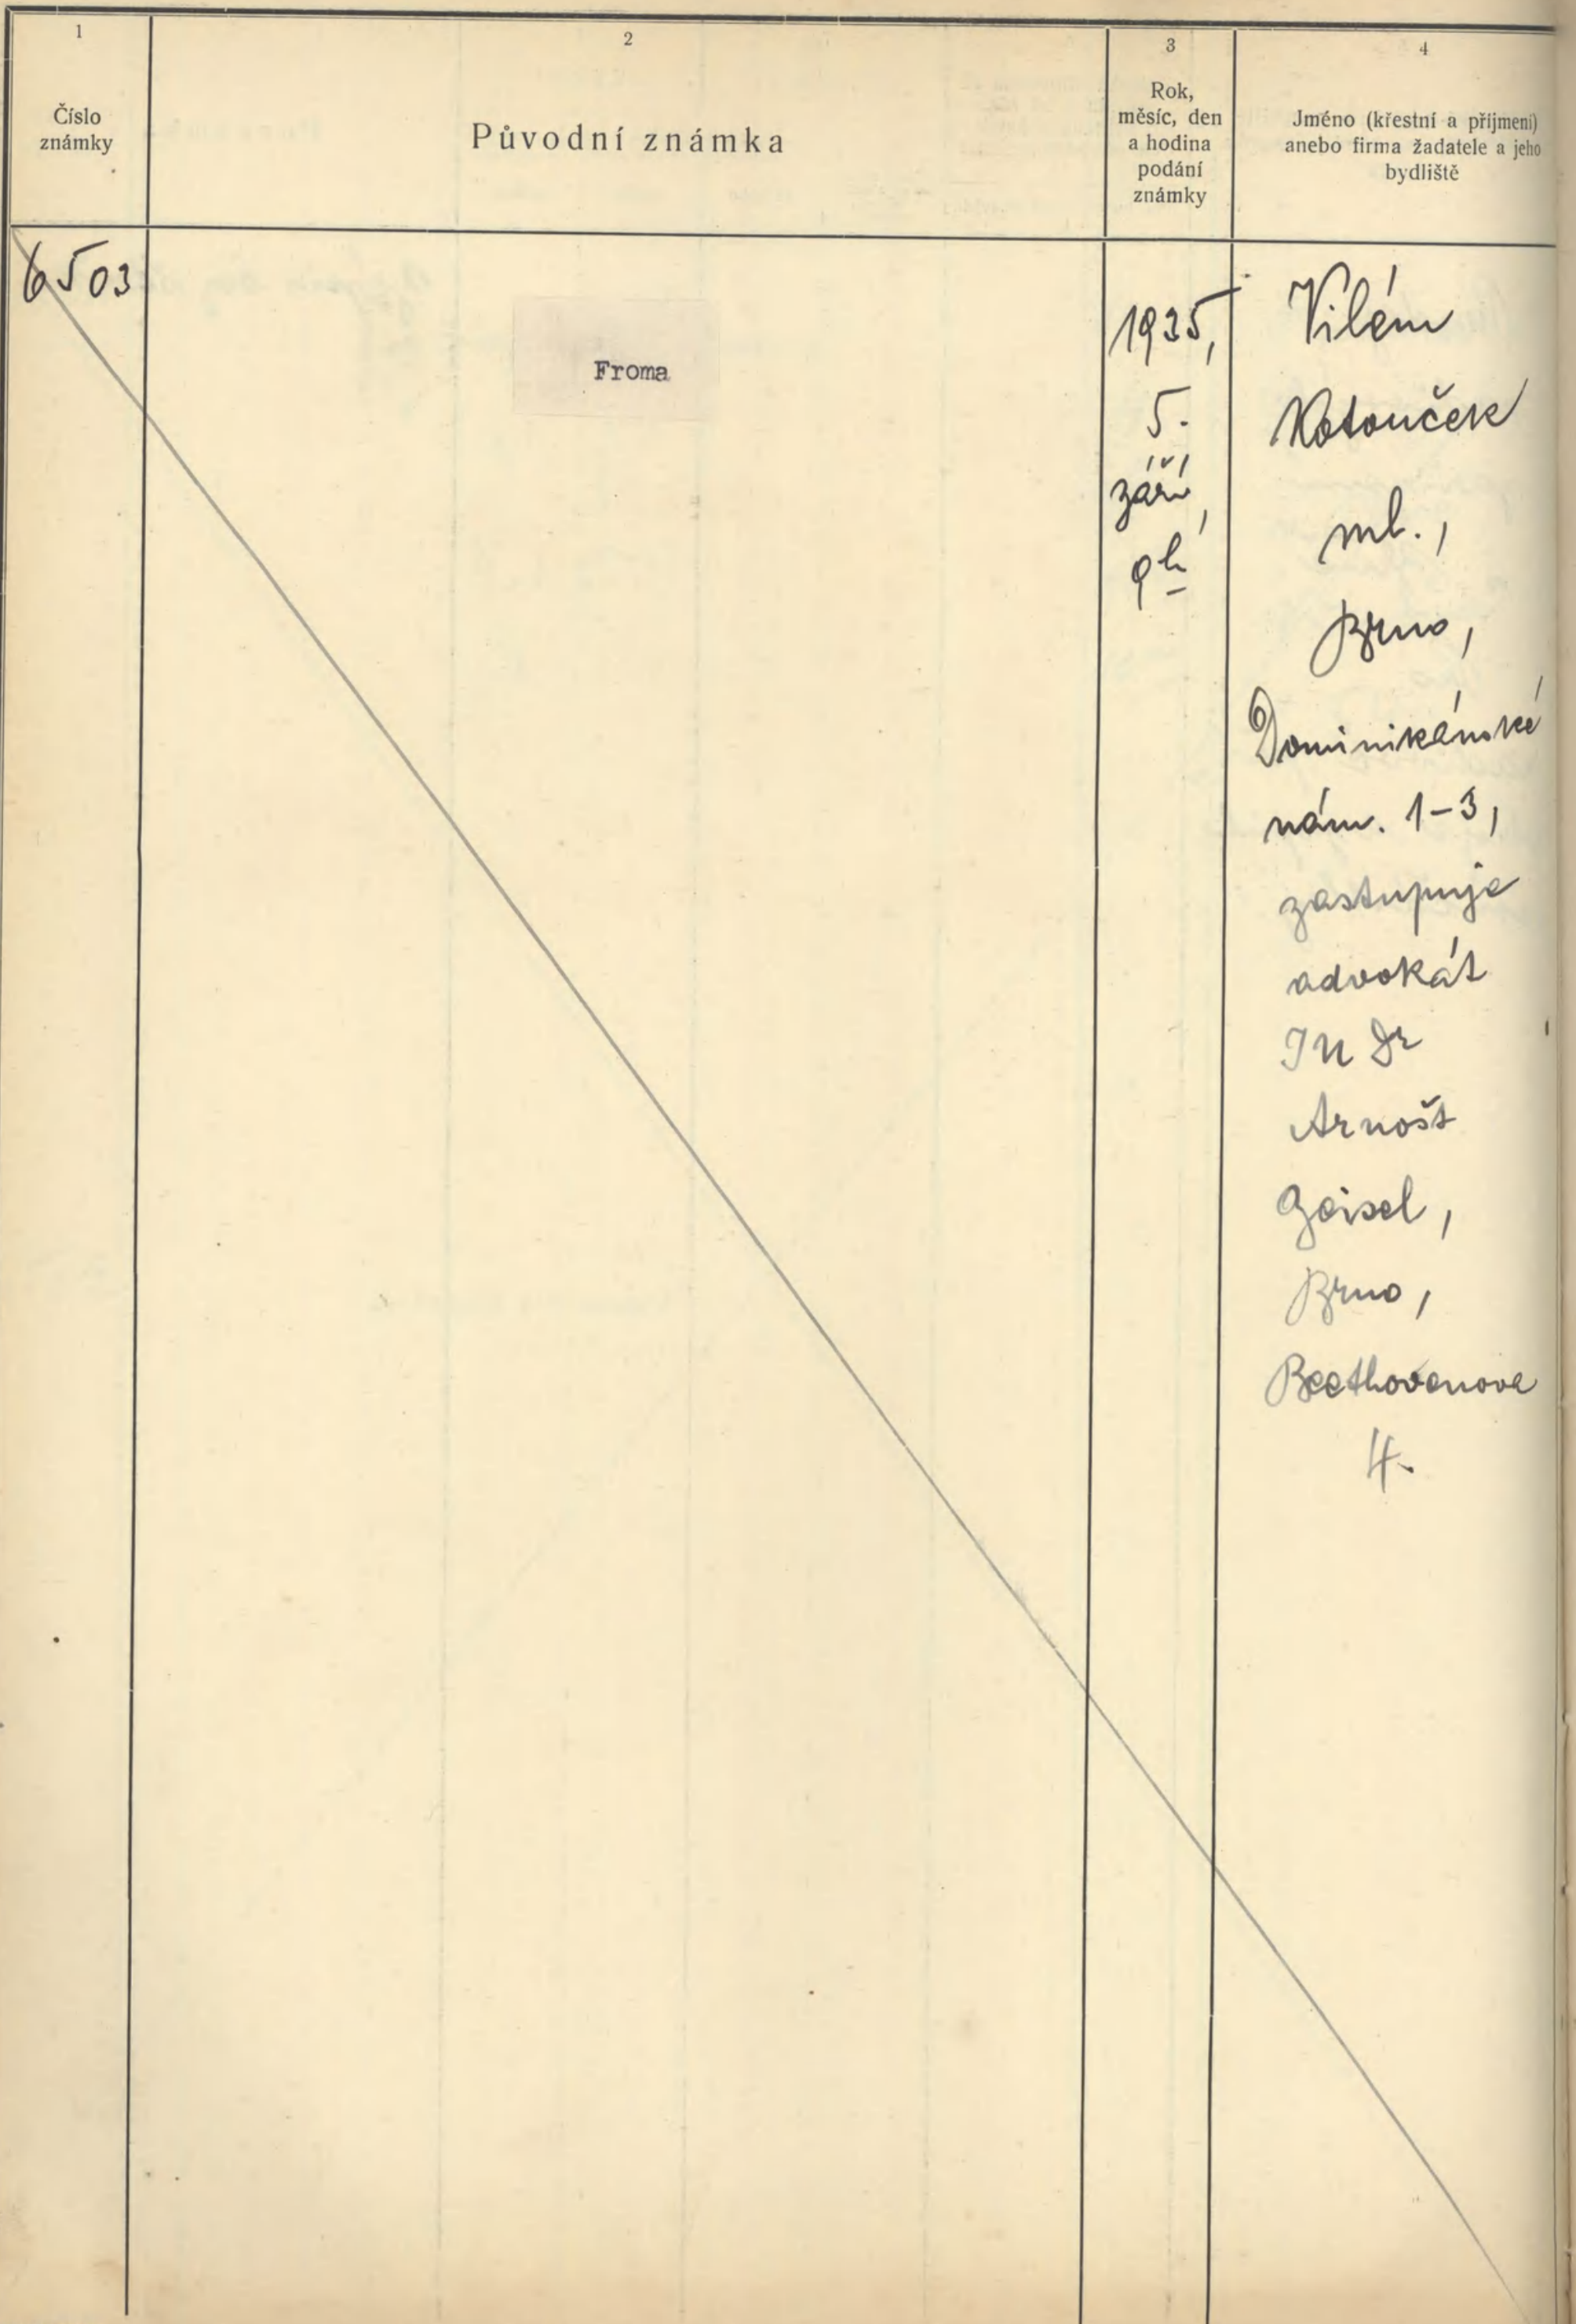 1
Číslo
známky
2
Původní známka
3
Rok,
měsíc, den
a hodina
podání
známky
4
Jméno (křestní a příjmení)
anebo firma žadatele a jeho
bydliště
6503
Froma
1935,
5.
září,
9h
Vilém
Kotouček
ml.,
Brno,
Dominikánské
nám. 1-3,
zastupuje
advokát
JUDr
Arnošt
Geisel,
Brno,
Beethovenova
4.